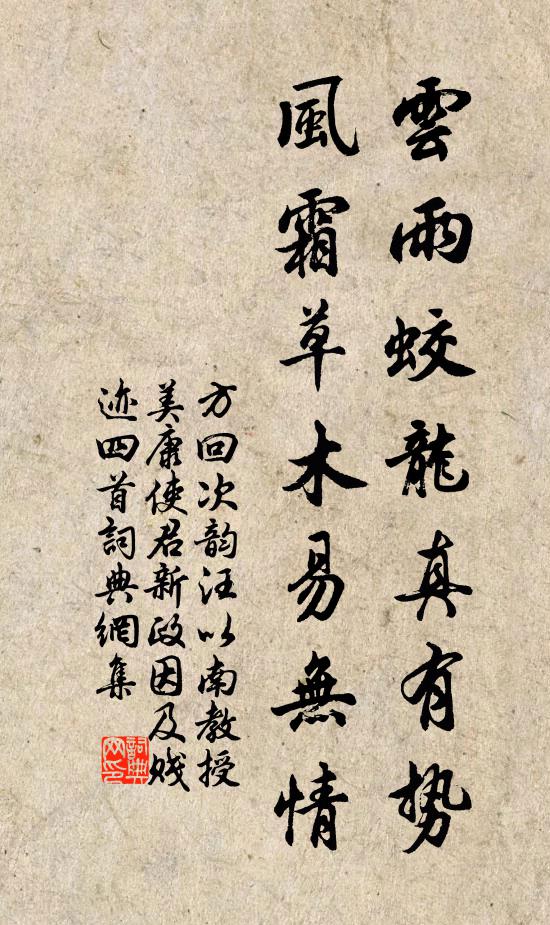 雲雨蛟龍真有势
風霜草木易無情
方回次韵汪以南教授
美康使君新政因及贱
迹四首詞典網集
詞典網印